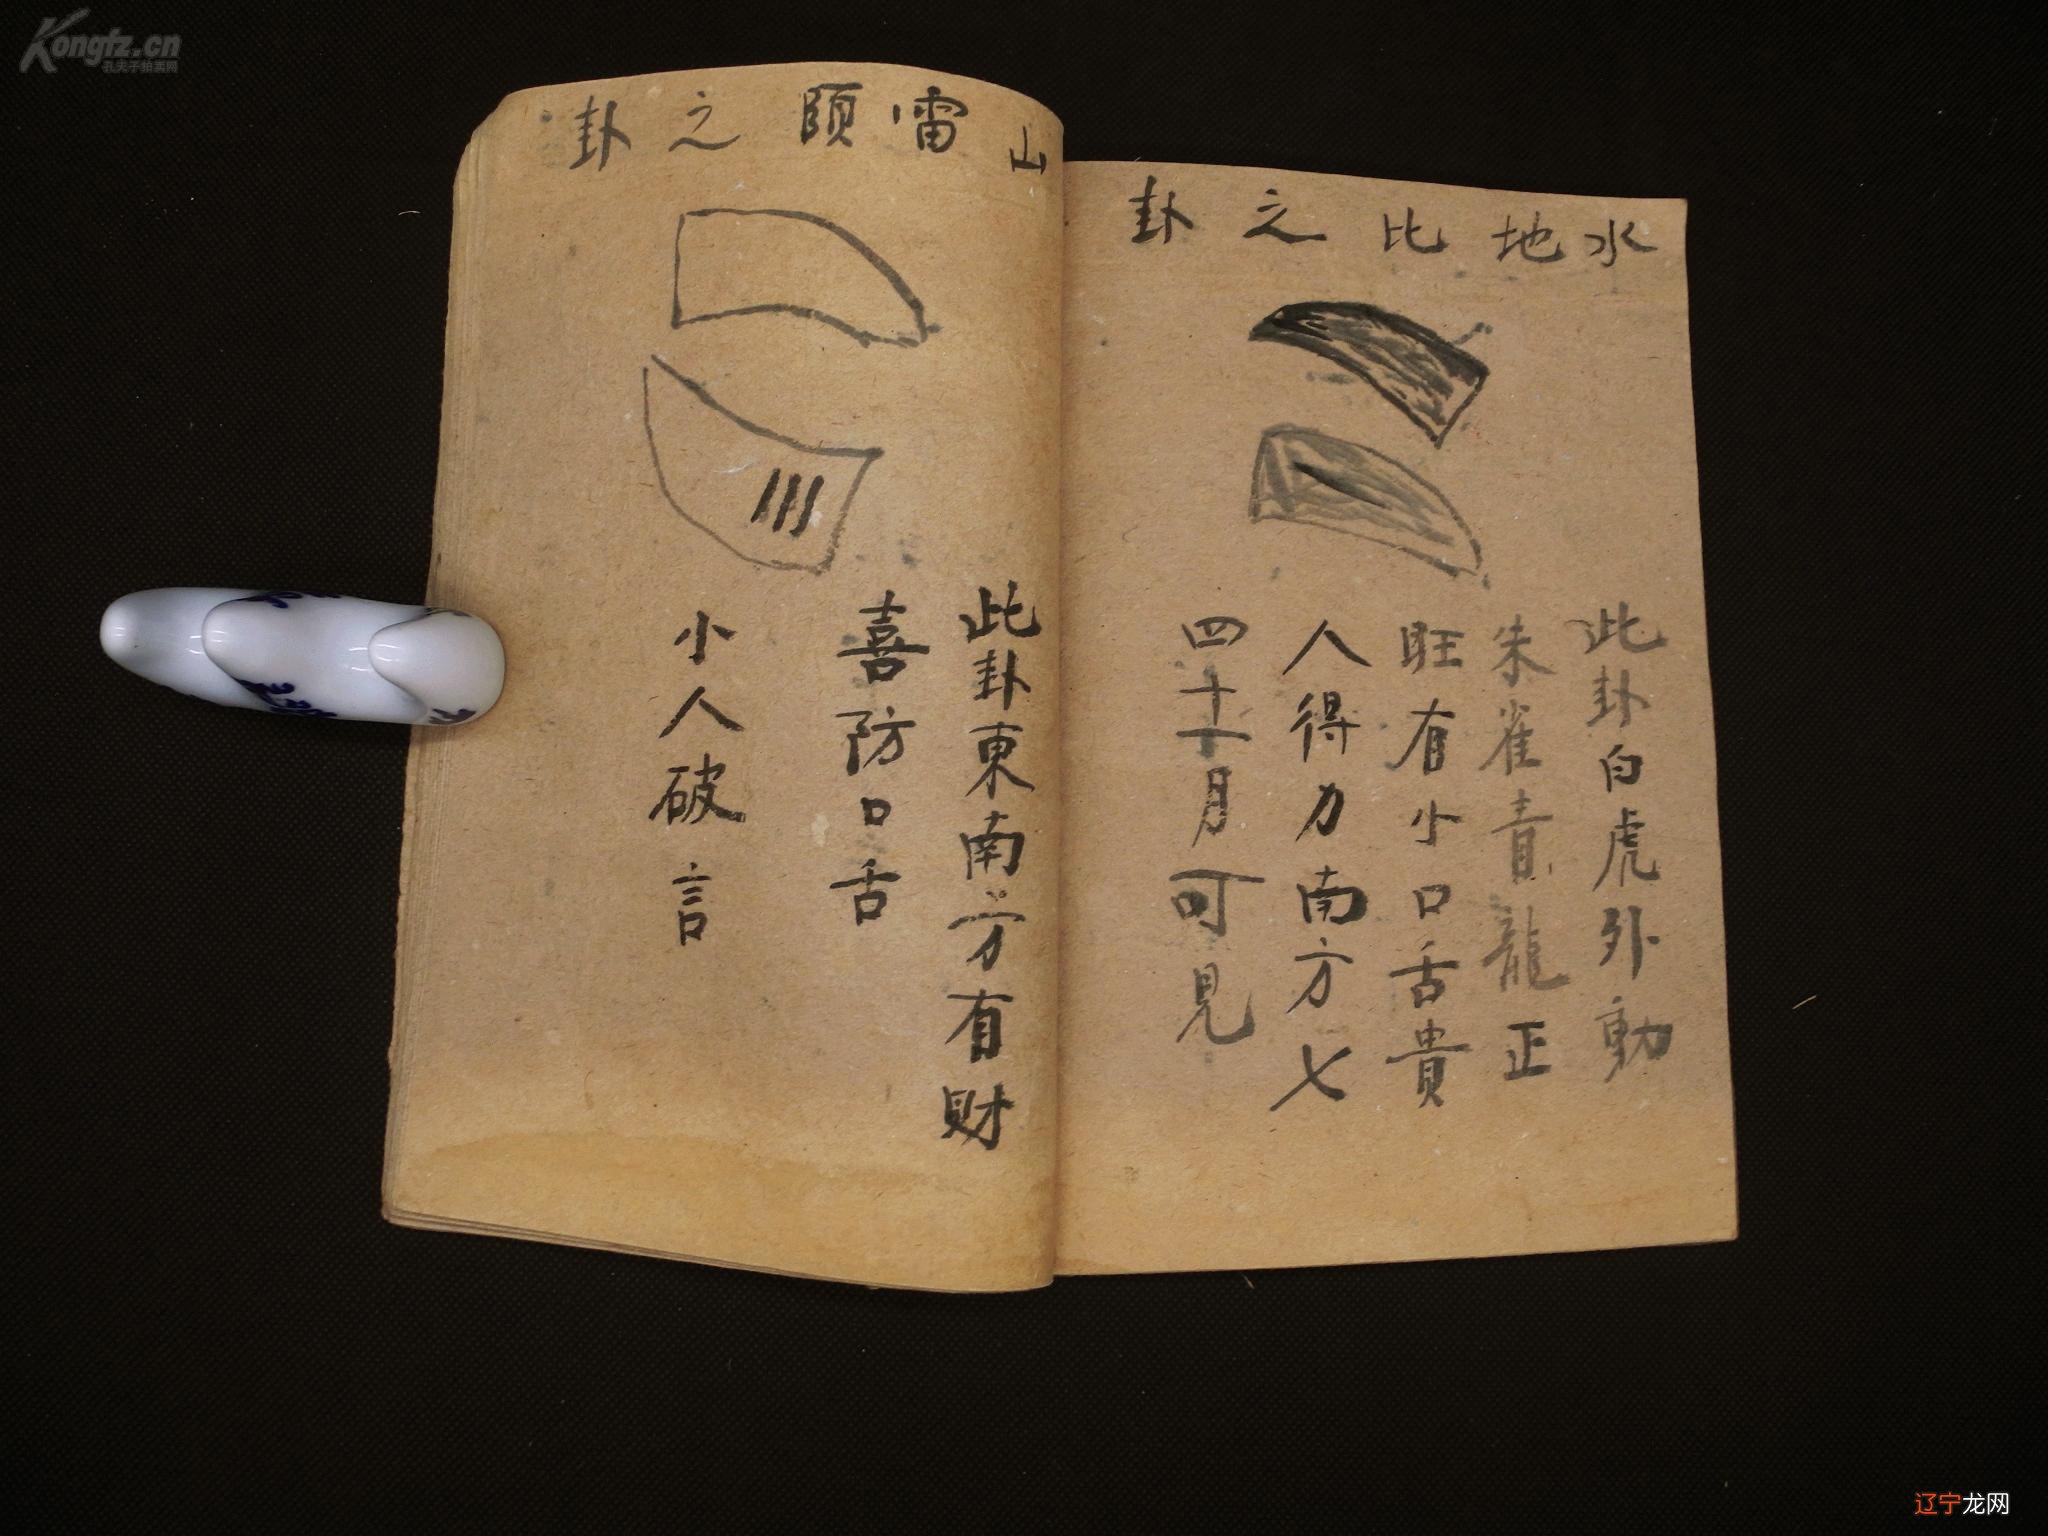 Kongfz.cn
孔夫子拍卖网
水地比之卦
此卦白虎外動
朱雀青龍正
旺有小口舌貴
人得力南方七
四十一月可見
山雷頤之卦
此卦東南方有財
喜防口舌
小人破言
辽宁龙网